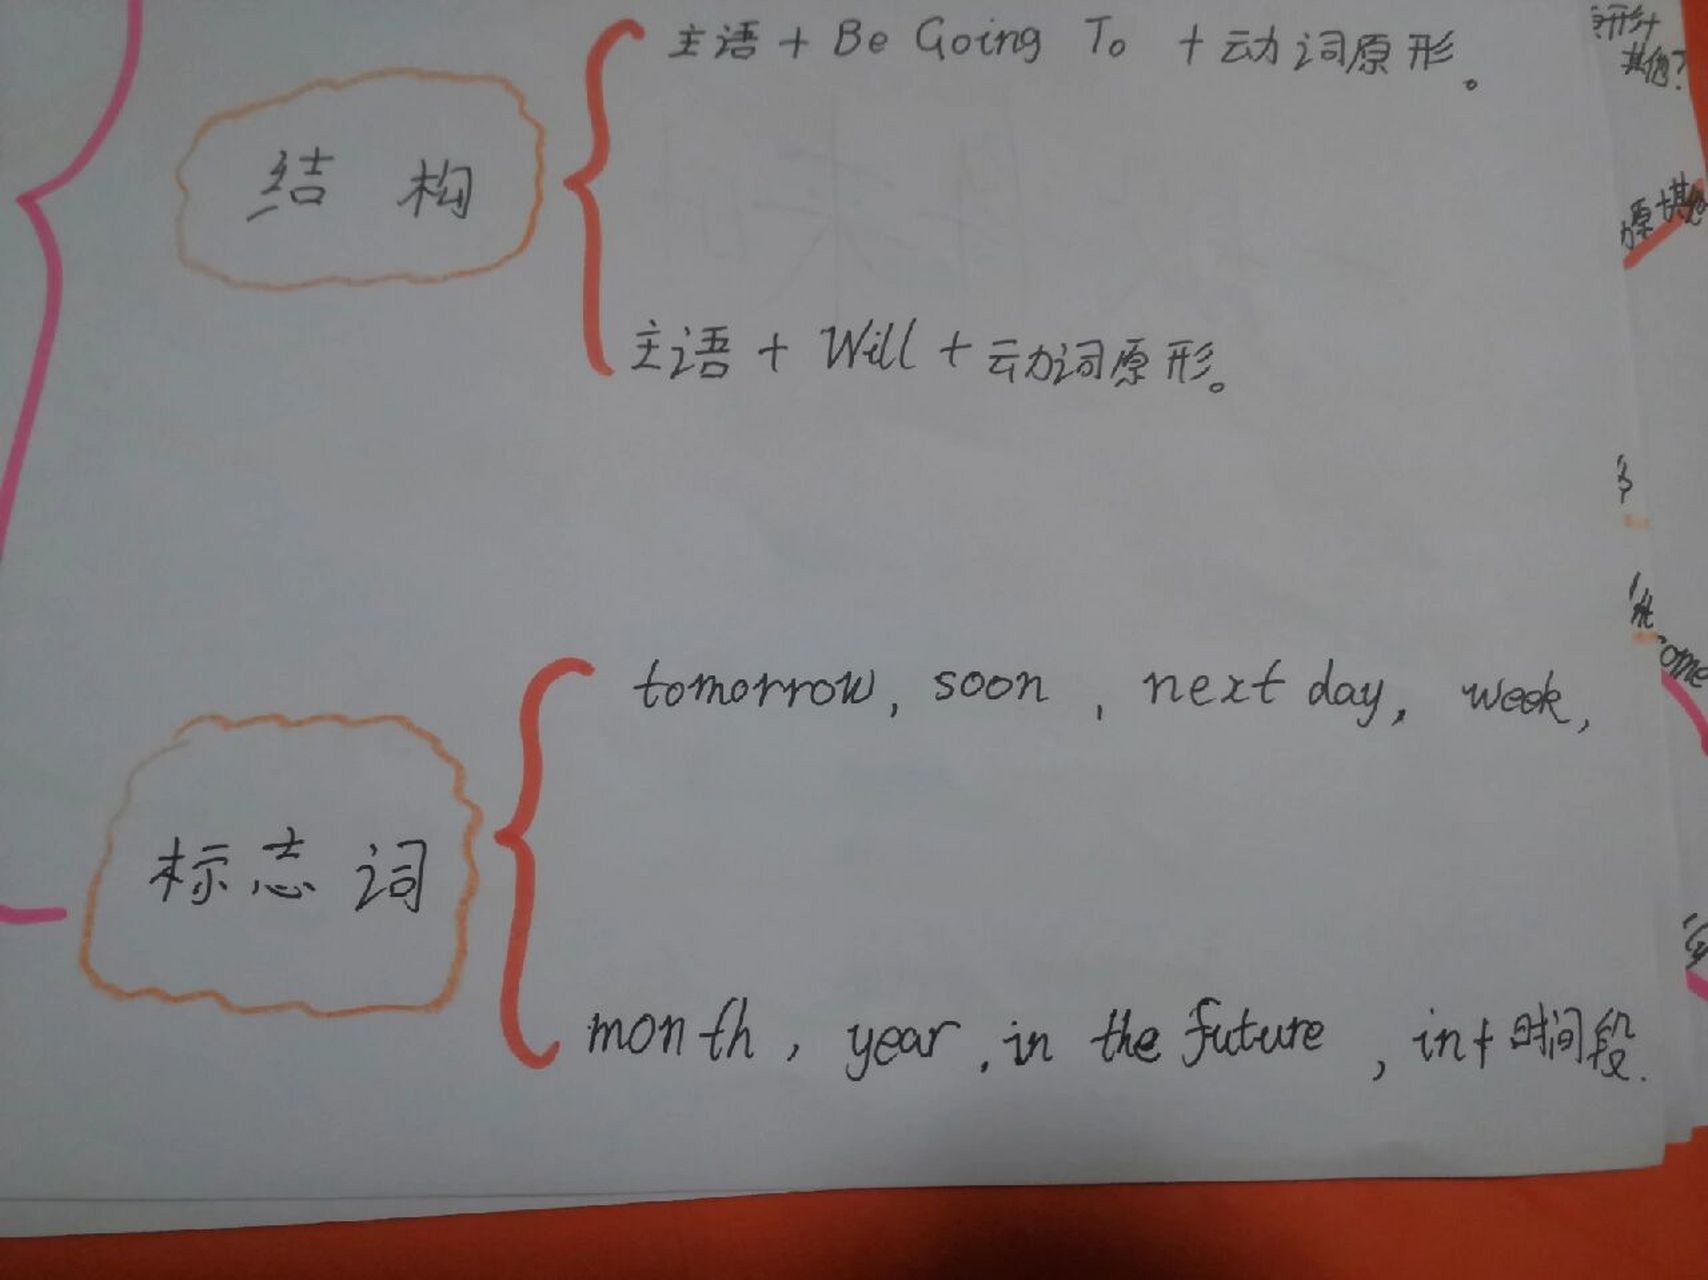 主语 + Be Going To + 动词原形。
结构
主语 + Will + 动词原形。
其他?
原+其他
tomorrow, soon , next day, week,
标志词
month , year , in the future , in+时间段.